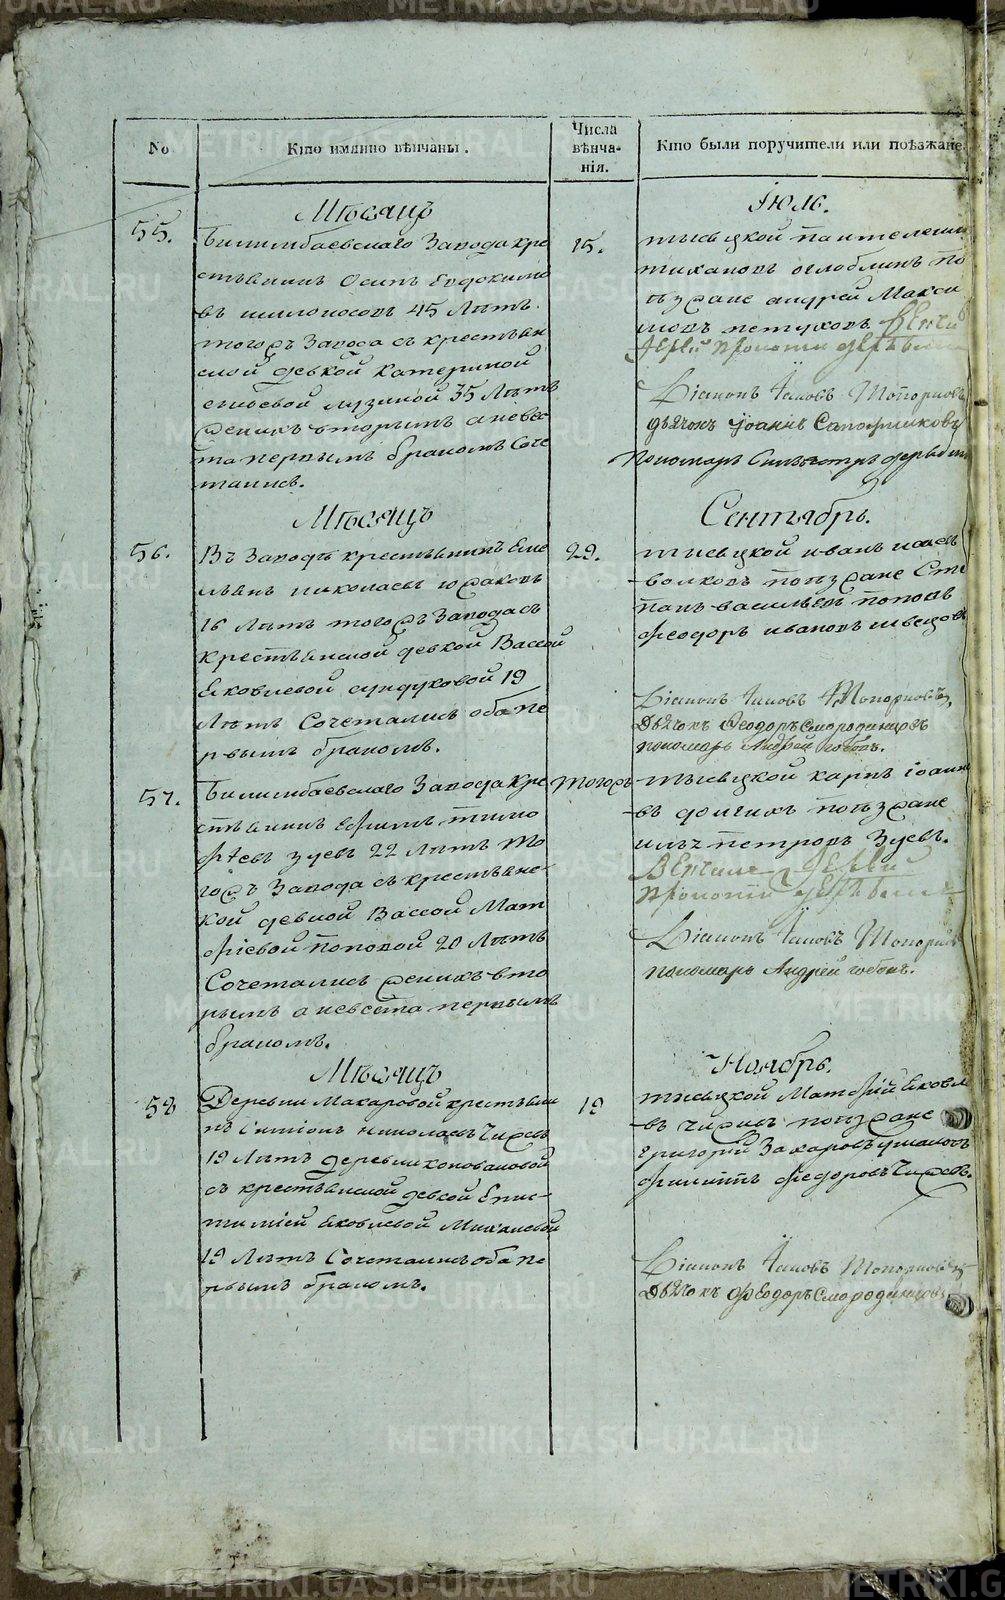 METRIKI.GASO-URAL.RU
No
Кто имянно вѣнчаны.
Числа
вѣнча-
нія.
Кто были поручители или поѣзжане.
Мѣсяцъ
Іюль.
55.
Билимбаевскаго Завода кре
стьянинъ Осипъ Евдокимо
въ шилоносовъ 45 Лѣтъ
тогожъ Завода съ крестьян
ской девкой Катериной
35 Лѣтъ
женихъ вторымъ а невес
та первымъ бракомъ Соче
тались.
15.
тысяцкой пантелеимо
тихановъ оглоблинъ по
ѣзжане андрей Макси
мовъ петуховъ
Діаконъ Іаковъ Топорковъ
дьячокъ Іоаннъ Сапожниковъ
Пономарь
Мѣсяцъ
Сентябрь.
56.
Въ Заводѣ крестьянинъ Еме
льянъ николаевъ южаковъ
16 Лѣтъ тогожъ Завода съ
крестьянской девкой Вассой
Яковлевой сундуковой 19
Лѣтъ Сочетались оба пе
рвымъ бракомъ.
29.
тысяцкой иванъ исаевъ
волковъ поѣзжане Сте
панъ васильевъ поповъ
Феодоръ ивановъ швецовъ
Діаконъ Іаковъ Топорковъ,
Дьячокъ Феодоръ Смородинцовъ
пономарь Андрей
57.
Билимбаевскаго Завода кре
стьянинъ Ефимъ тимо
Фѣевъ зуевъ 22 Лѣтъ то
гожъ Завода съ крестьянс-
кой девкой Вассой Мат
Фіевой поповой 20 Лѣтъ
Сочетались женихъ вто
рымъ а невеста первымъ
бракомъ.
тогожъ
тысяцкой карпъ іоанно
въ поѣзжане
петровъ Зуевъ.
Венчалъ Іерей
Діаконъ Іаковъ Топорковъ
пономарь Андрей
Мѣсяцъ
Ноябрь.
58
Деревни Макаровой крестьяни
нъ Симіонъ николаевъ Чижевъ
19 Лѣтъ деревни коноваловой
съ крестьянской девкой Епис-
тиміей Яковлевой Михалевой
19 Лѣтъ Сочетались оба пе
рвымъ бракомъ.
19
тысяцкой Матфій Яковле
въ чижевъ поѣзжане
григорей Захаровъ
Филиппъ Федоровъ Чижевъ.
Діаконъ Іаковъ Топорковъ
Дьячокъ Феодоръ Смородинцовъ